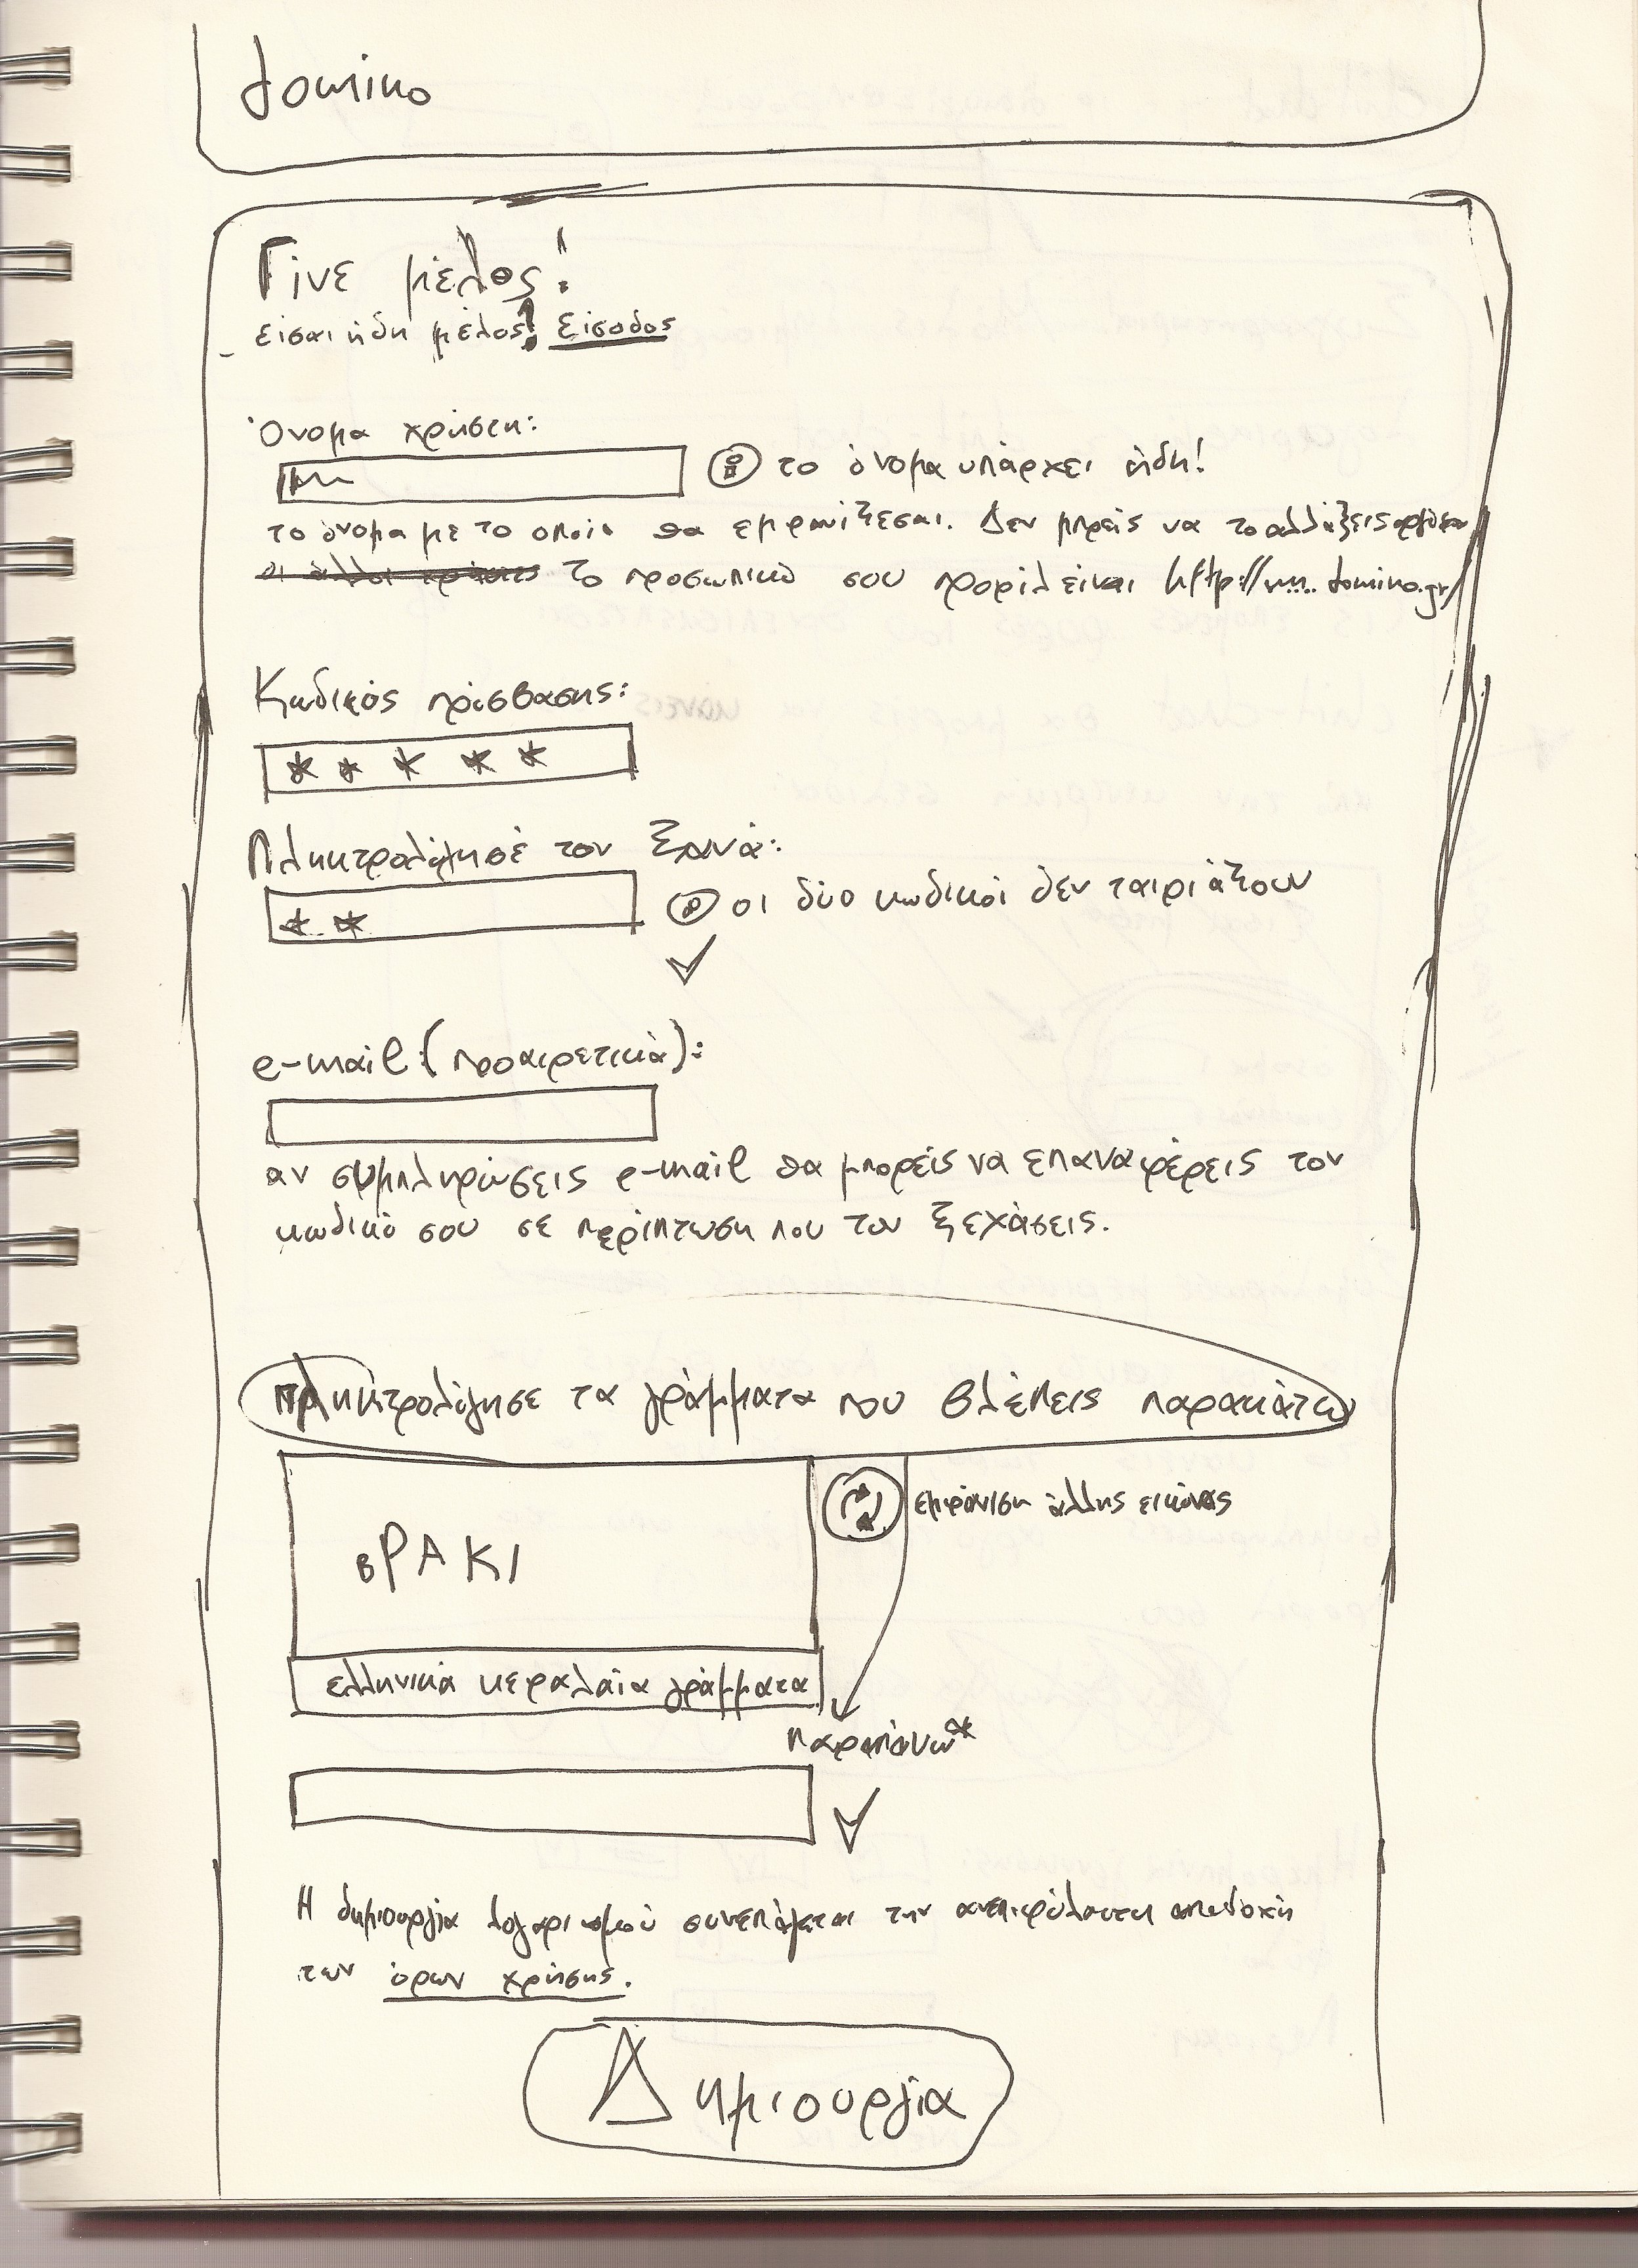 domino
Γίνε μέλος!
είσαι ήδη μέλος! Είσοδος
Όνομα χρήστη:
το όνομα υπάρχει ήδη!
το όνομα με το οποίο θα εμφανίζεσαι. Δεν μπρείς να το αλλάξεις αργότερα
οι άλλοι χρήστες το προσωπικό σου προφίλ είναι http://www.domino.gr/
Κωδικός πρόσβασης:
* * * * *
Πληκτρολόγησέ τον ξανά:
* * οι δύο κωδικοί δεν ταιριάζουν
e-mail: (προαιρετικά):
αν συμπληρώσεις e-mail θα μπορείς να επαναφέρεις τον
κωδικό σου σε περίπτωση που τον ξεχάσεις.
πληκτρολόγησε τα γράμματα που βλέπεις παρακάτω
εμφάνιση άλλης εικόνας
ΒΡΑΚΙ
ελληνικά κεφαλαία γράμματα
παραπάνω*
Η δημιουργία λογαριασμού συνεπάγεται την ανεπιφύλακτη αποδοχή
των όρων χρήσης.
Δημιουργία